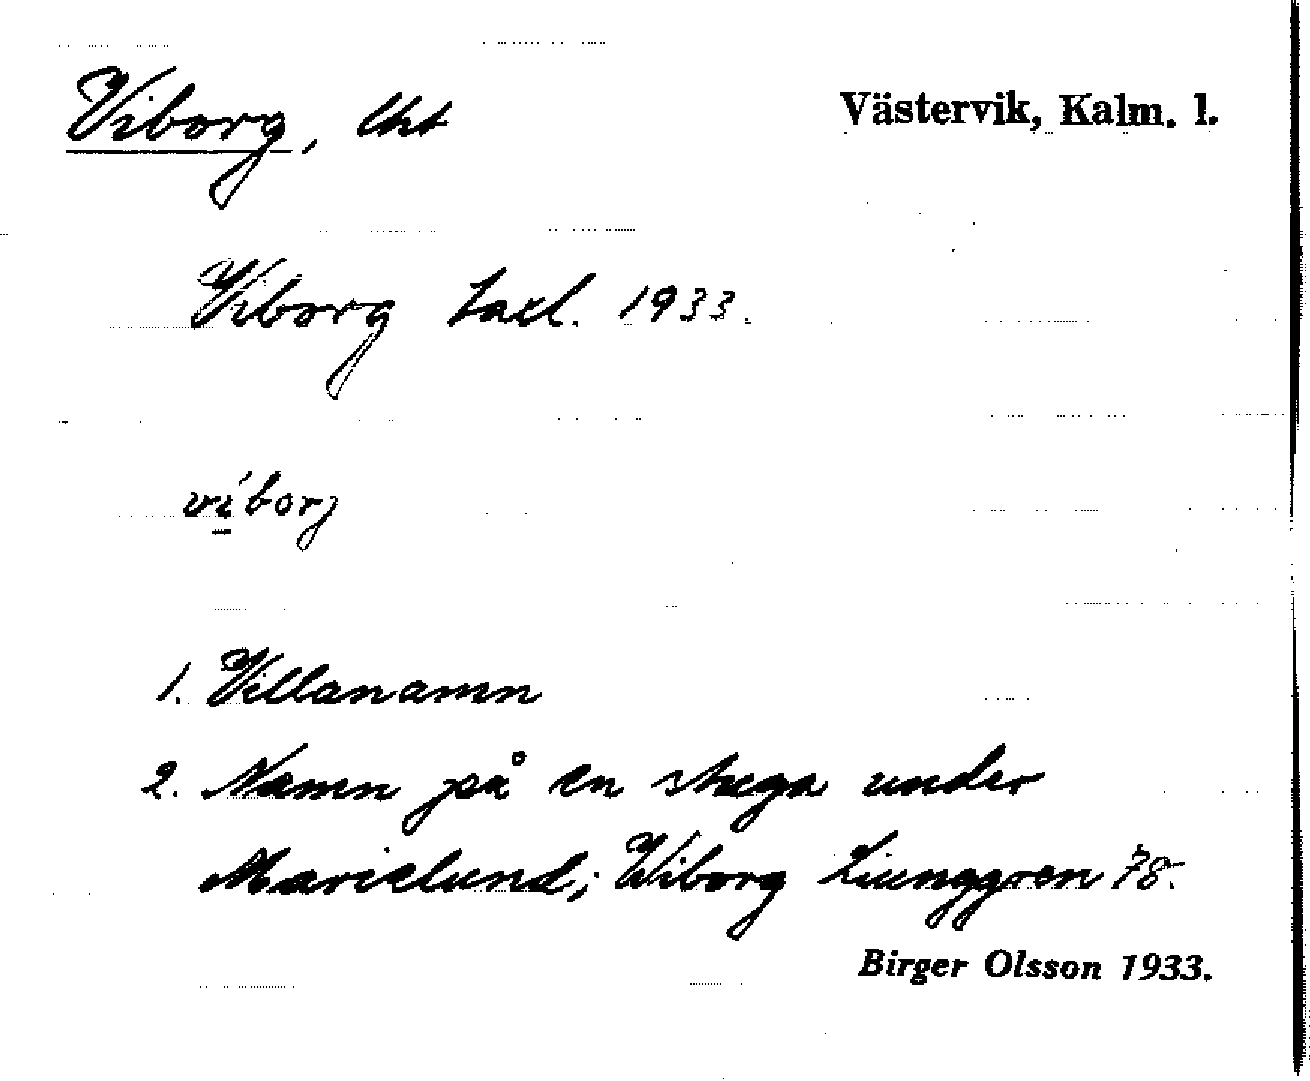 Viborg, lht
Västervik, Kalm. l.
Viborg taxl. 1933.
víborj
1. Villanamn
2. Namn på en stuga under
Marielund; Wiborg Liunggren 78.
Birger Olsson 1933.